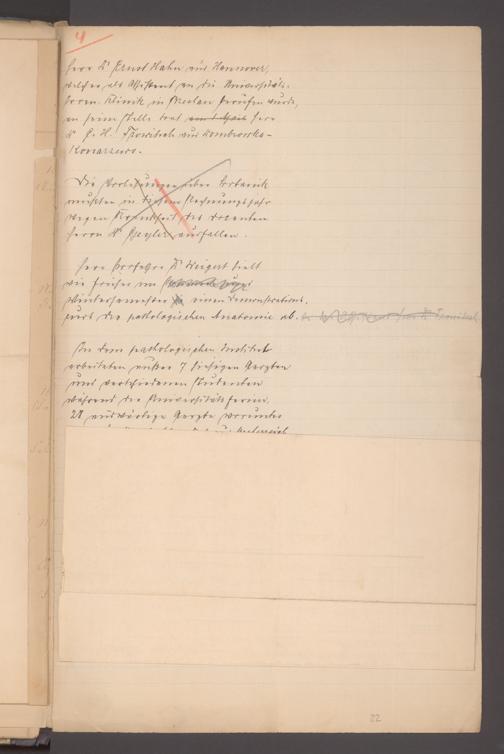 4
Herr Dr Ernst Hahn aus Hannover,
welcher als Assistent an die Universitäts-
Klinik in Breslau berufen wurde,
an seine Stelle trat Herr
Dr
Die Vorlesungen über Botanik
mußten in diesem Rechnungsjahr
wegen Krankheit des Docenten
Herrn Dr ausfallen.
Herr Professor Dr Weigert hielt
wie früher im
Wintersemester einen Demonstrations-
kurs der pathologischen Anatomie ab.
In dem pathologischen Institut
arbeiteten außer 7 hiesigen Aerzten
und verschiedenen Studenten
während der Universitätsferien
28 auswärtige Aerzte worunter
22